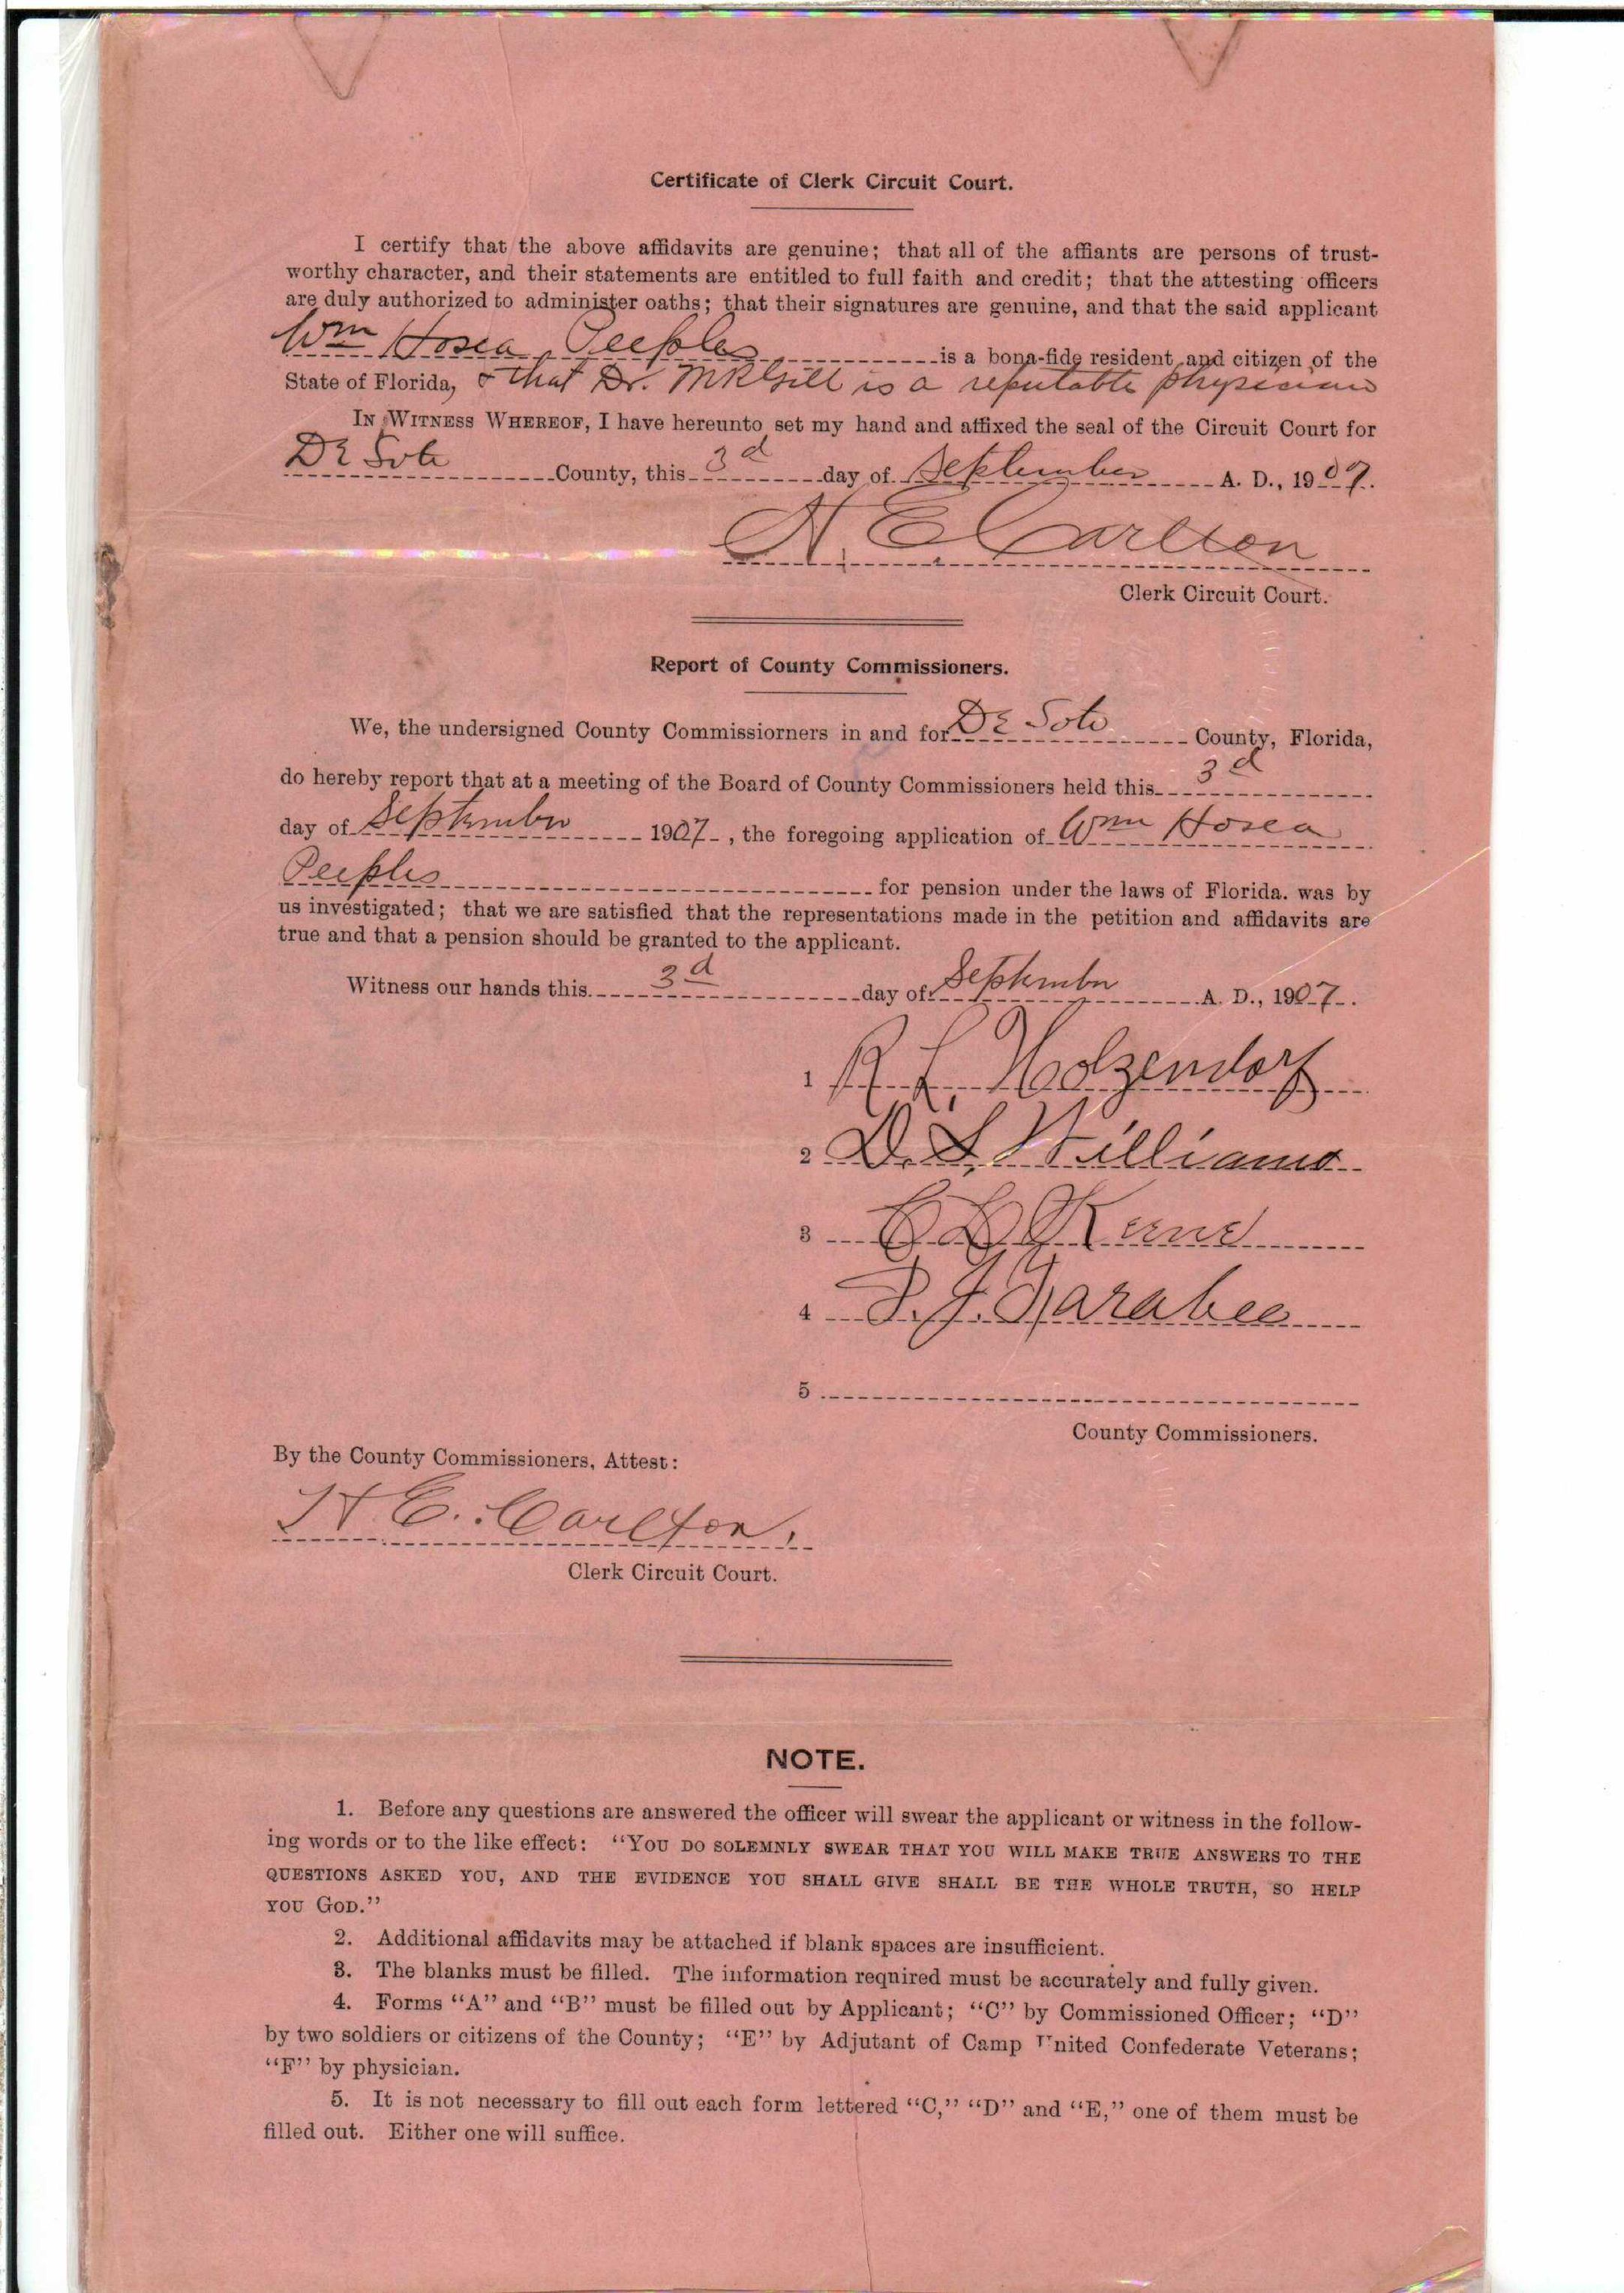 Certificate of Clerk Circuit Court.
I certify that the above affidavits are genuine; that all of the affiants are persons of trust-
worthy character, and their statements are entitled to full faith and credit; that the attesting officers
are duly authorized to administer oaths; that their signatures are genuine, and that the said applicant
Wm Hosea Peeples is a bona-fide resident and citizen of the
State of Florida, & that Dr. is a reputable physician
IN WITNESS WHEREOF, I have hereunto set my hand and affixed the seal of the Circuit Court for
De Soto County, this 3d day of September A. D., 1907.
H. E. Carlton
Clerk Circuit Court.
Report of County Commissioners.
We, the undersigned County Commissiorners in and for De Soto County, Florida,
do hereby report that at a meeting of the Board of County Commissioners held this 3d
day of September 1907, the foregoing application of Wm Hosea
Peeples for pension under the laws of Florida. was by
us investigated; that we are satisfied that the representations made in the petition and affidavits are
true and that a pension should be granted to the applicant.
Witness our hands this 3d day of September A. D., 1907.
1 R. L. Holzendorf
2 D. S. Williams
3 C L Keene
4
5
County Commissioners.
By the County Commissioners, Attest:
H E. Carlton.
Clerk Circuit Court.
NOTE.
1. Before any questions are answered the officer will swear the applicant or witness in the follow-
ing words or to the like effect: "YOU DO SOLEMNLY SWEAR THAT YOU WILL MAKE TRUE ANSWERS TO THE
QUESTIONS ASKED YOU, AND THE EVIDENCE YOU SHALL GIVE SHALL BE THE WHOLE TRUTH, SO HELP
YOU GOD."
2. Additional affidavits may be attached if blank spaces are insufficient.
3. The blanks must be filled. The information required must be accurately and fully given.
4. Forms "A" and "B" must be filled out by Applicant; "C" by Commissioned Officer; "D"
by two soldiers or citizens of the County; "E" by Adjutant of Camp United Confederate Veterans;
"F" by physician.
5. It is not necessary to fill out each form lettered "C," "D" and "E," one of them must be
filled out. Either one will suffice.